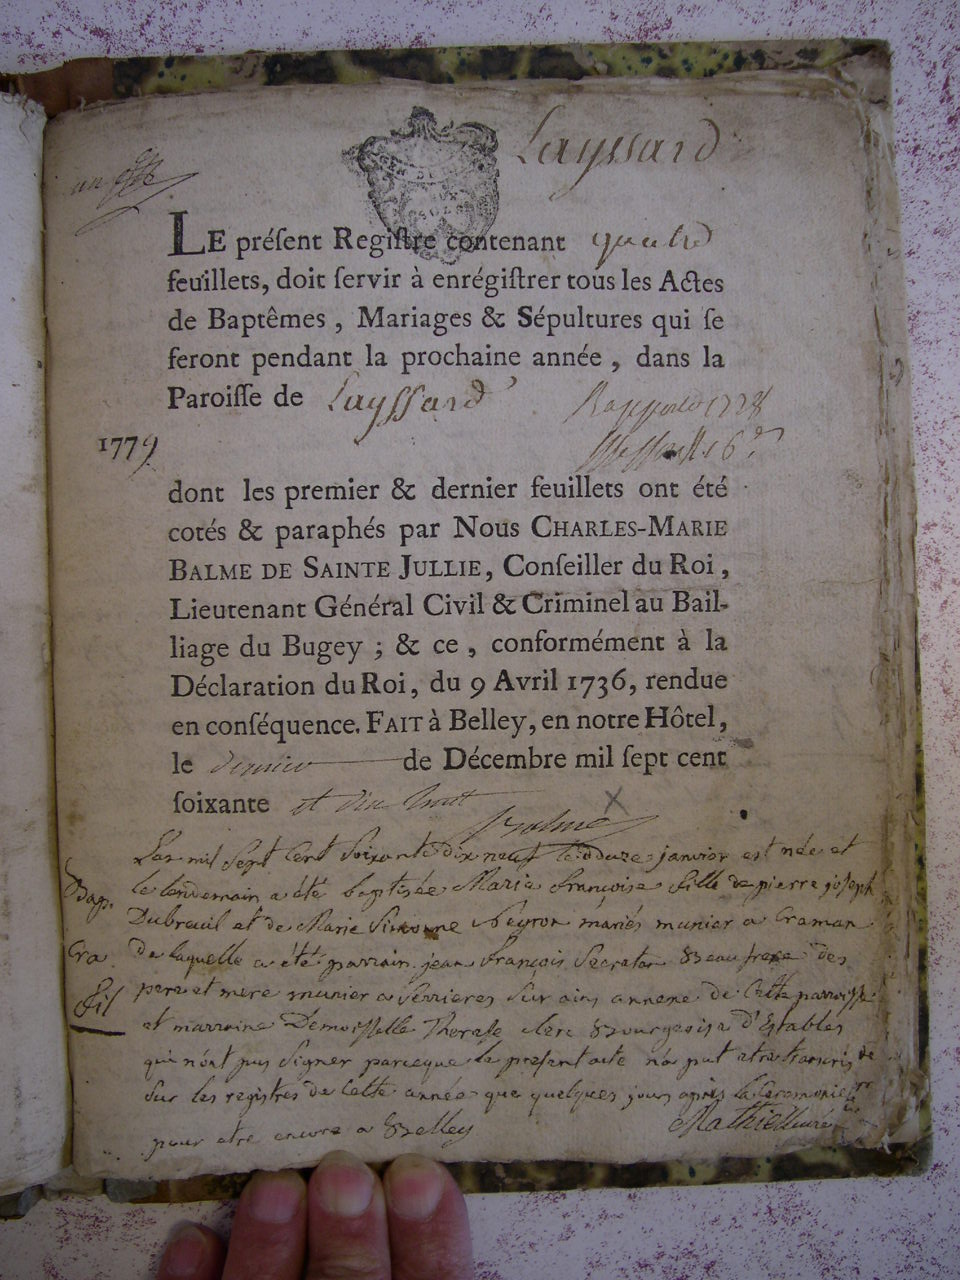 Layssard
LE préſent Regiſtre contenant quatre
feuillets, doit ſervir à enrégiſtrer tous les Actes
de Baptêmes, Mariages & Sépultures qui ſe
feront pendant la prochaine année, dans la
Paroiſſe de Layssard
1779
dont les premier & dernier feuillets ont été
cotés & paraphés par Nous CHARLES-MARIE
BALME DE SAINTE JULLIE, Conſeiller du Roi,
Lieutenant Général Civil & Criminel au Bail-
liage du Bugey; & ce, conformément à la
Déclaration du Roi, du 9 Avril 1736, rendue
en conſéquence. FAIT à Belley, en notre Hôtel,
le dernier de Décembre mil ſept cent
ſoixante et dix huit
Balme
Lan mil Sept Cent Soixante dix neuf le douze janvier est née et
Bap. le lendemain a été baptisée Marie françoise fille de pierre joseph
Dubreuil et de Marie Simonne Neyron mariés munier a Craman
de laquelle a été parrain jean françois Secretan Beau frere des
pere et mere munier a Serrieres Sur ains annexe de Cette parroisse
et marraine Demoisselle Therese clerc Bourgeoise d'Etables
qui n'ont pus Signer parceque le present acte n'a put etre transcris
Sur les registres de Cette année que quelques jours après la Ceremonie
pour etre encore a Belley Mathieu curé